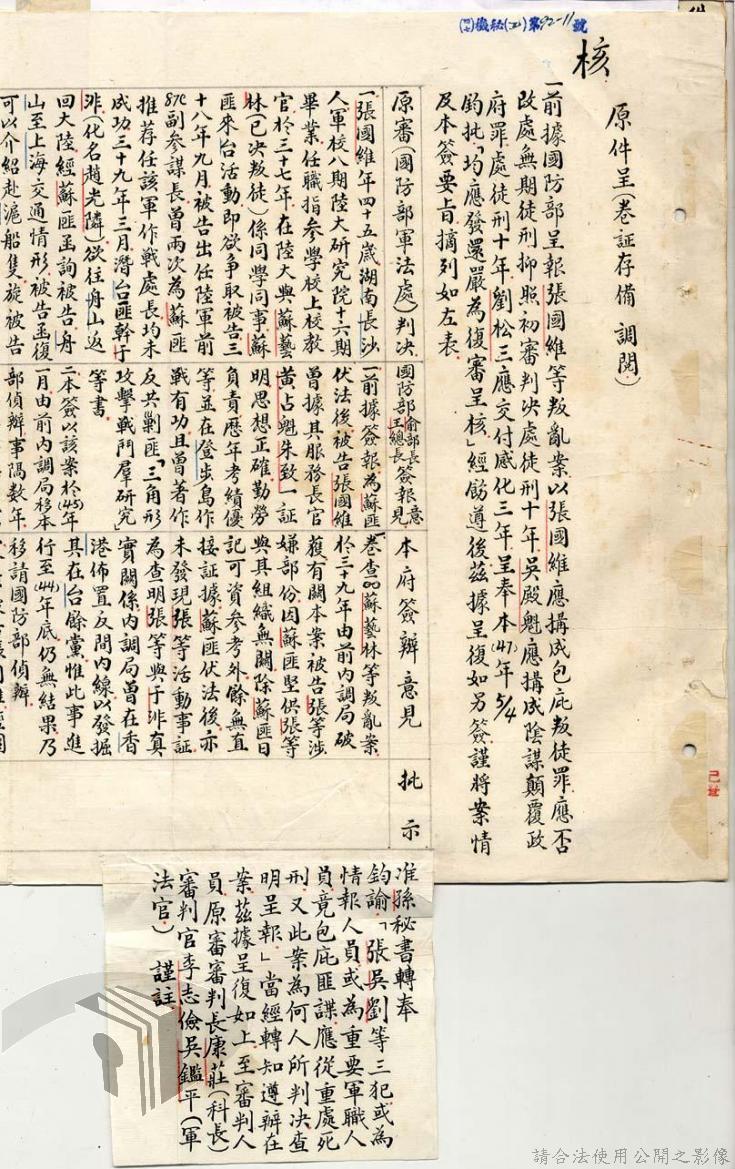 (四七)機秘(乙)第92-11號
核
原件呈(卷証存備調閱)
一前據國防部呈報張國維等叛亂案以張國維應搆成包庇叛徒罪應否
改處無期徒刑抑照初審判決處徒刑十年吳殿魁應搆成陰謀顛覆政
府罪處徒刑十年劉松三應交付感化三年呈奉本(47)年5/4
鈞批「均應發還嚴為復審呈核」經飭遵後茲據呈復如另簽謹將案情
及本簽要旨摘列如左表
原審(國防部軍法處)判決
一張國維年四十五歲湖南長沙
人軍校八期陸大研究院十六期
畢業任職指參學校上校教
官於三十七年在陸大與蘇藝
林(已決叛徒)係同學同事蘇
匪來台活動即欲爭取被告三
十八年九月被告出任陸軍前
87C副參謀長曾兩次為蘇匪
推荐任該軍作戰處長均未
成功三十九年三月潛台匪幹于
非(化名趙光隣)欲往舟山返
回大陸經蘇匪函詢被告舟
山至上海交通情形被告函復
可以介紹赴滬船隻旋被告
國防部俞部長王總長簽報意見
一前據簽報為蘇匪
伏法後被告張國維
曾據其服務長官
黃占魁朱致一証
明思想正確勤勞
負責歷年考績優
等並在登步島作
戰有功且曾著作
反共剿匪「三角形
攻擊戰鬥羣研究
等書
二本簽以該案於(45)年
一月由前內調局移本
部偵辦事隔數年
本府簽辦意見
一卷查蘇藝林等叛亂案
於三十九年由前內調局破
獲有關本案被告張等涉
嫌部份因蘇匪堅供張等
與其組織無關除蘇匪日
記可資參考外餘無直
接証據蘇匪伏法後亦
未發現張等活動事証
為查明張等與于非真
實關係內調局曾在香
港佈置反間內線以發掘
其在台餘黨惟此事進
行至(44)年底仍無結果乃
移請國防部偵辦
批示
准孫秘書轉奉
鈞諭「張吳劉等三犯或為
情報人員或為重要軍職人
員竟包庇匪諜應從重處死
刑又此案為何人所判決查
明呈報」當經轉知遵辦在
案茲據呈復如上至審判人
員原審審判長康莊(科長)
審判官李志儉吳鑑平(軍
法官)謹註
請合法使用公開之影像